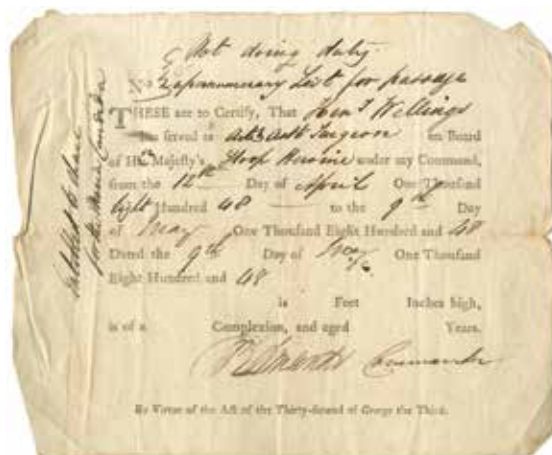 Not doing duty
No 5 Supernumerary List for passage
THESE are to Certify, That Henry Wellings
has served as Actg Asst Surgeon on Board
of Her Majesty's Sloop Heroine under my Command,
from the 12th Day of April One Thousand
Eight Hundred 48 to the 9th Day
of May One Thousand Eight Hundred and 48
Dated the 9th Day of May One Thousand
Eight Hundred and 48
is Feet Inches high,
is of a Complexion, and aged Years.
Commander
By Virtue of the Act of the Thirty-second of George the Third.
entitled to
for the